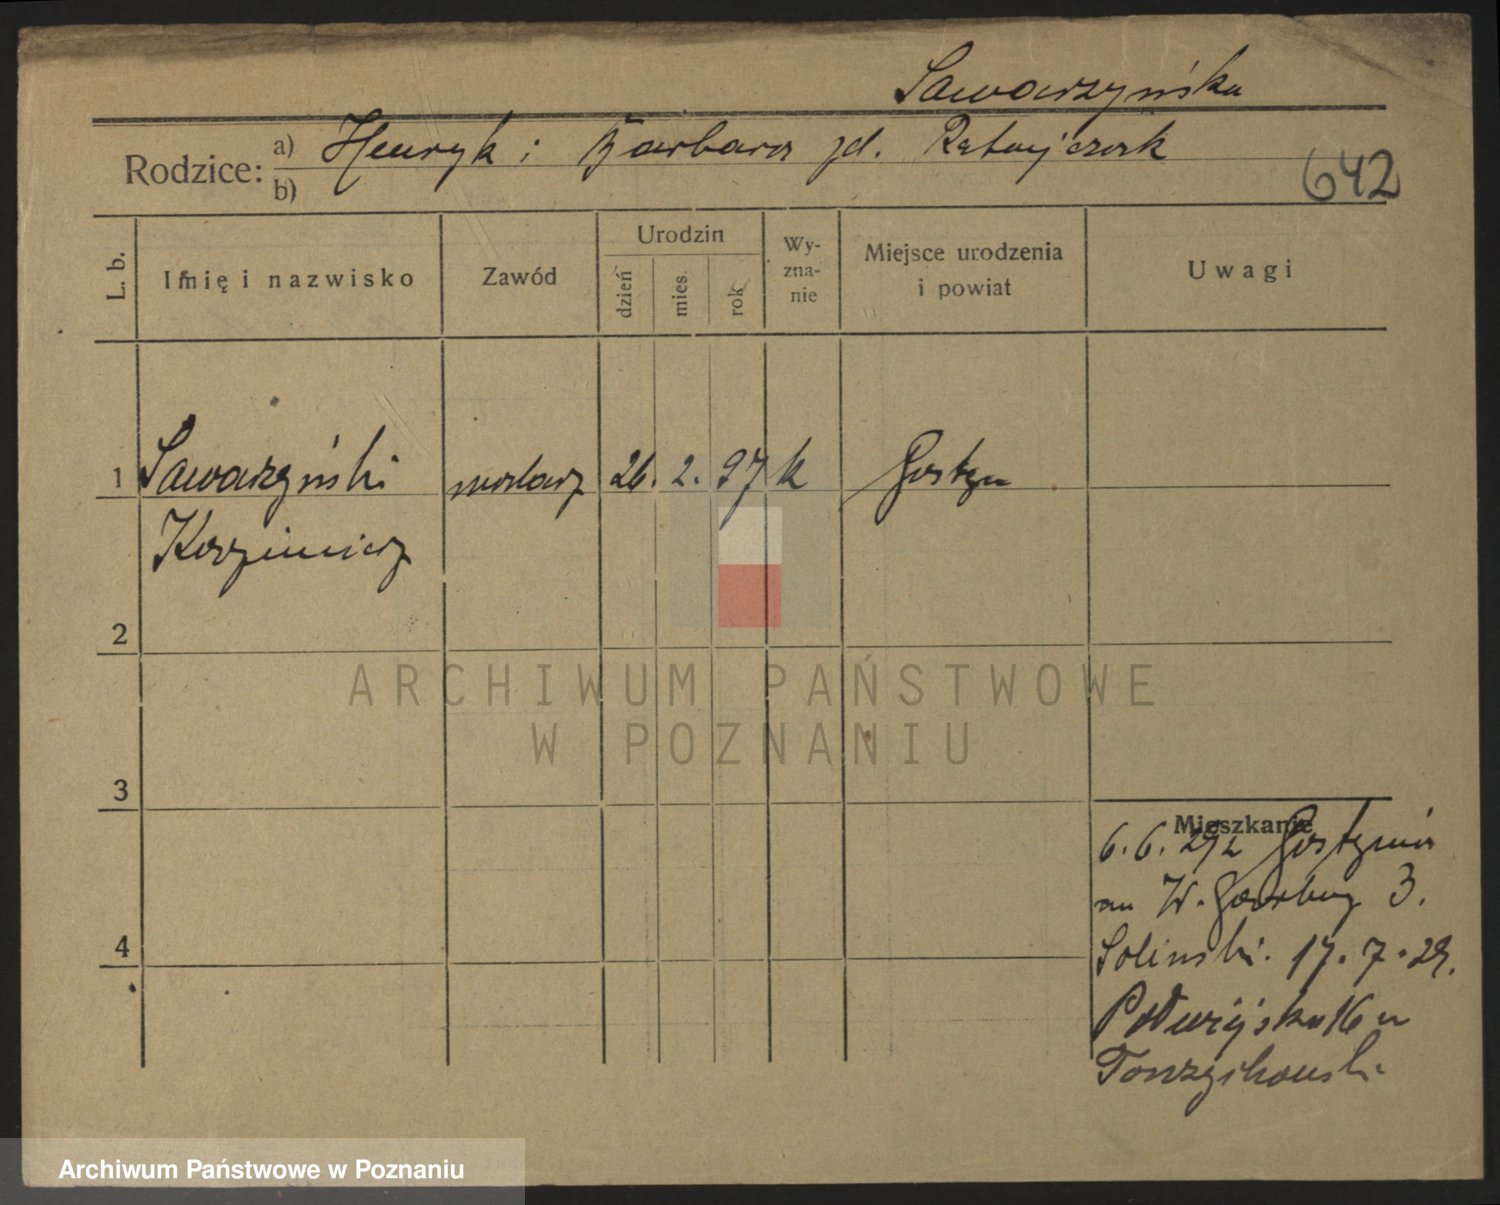 Sawarzyńska
Rodzice: a) Henryk i Barbara zd. Ratajczak
b)
642
L. b.
Imię i nazwisko
Zawód
Urodzin
dzień
mies.
rok
Wy-
zna-
nie
Miejsce urodzenia
i powiat
Uwagi
1 Sawarzyński murarz 26. 2. 97 k Gostyń
Kazimierz
2
ARCHIWUM PAŃSTWOWE
W POZNANIU
3
Mieszkanie
6.6.292 Gostynia
na W. Garbary 3.
Soliński. 17.7.29.
Półwiejska 16 u
4
Archiwum Państwowe w Poznaniu